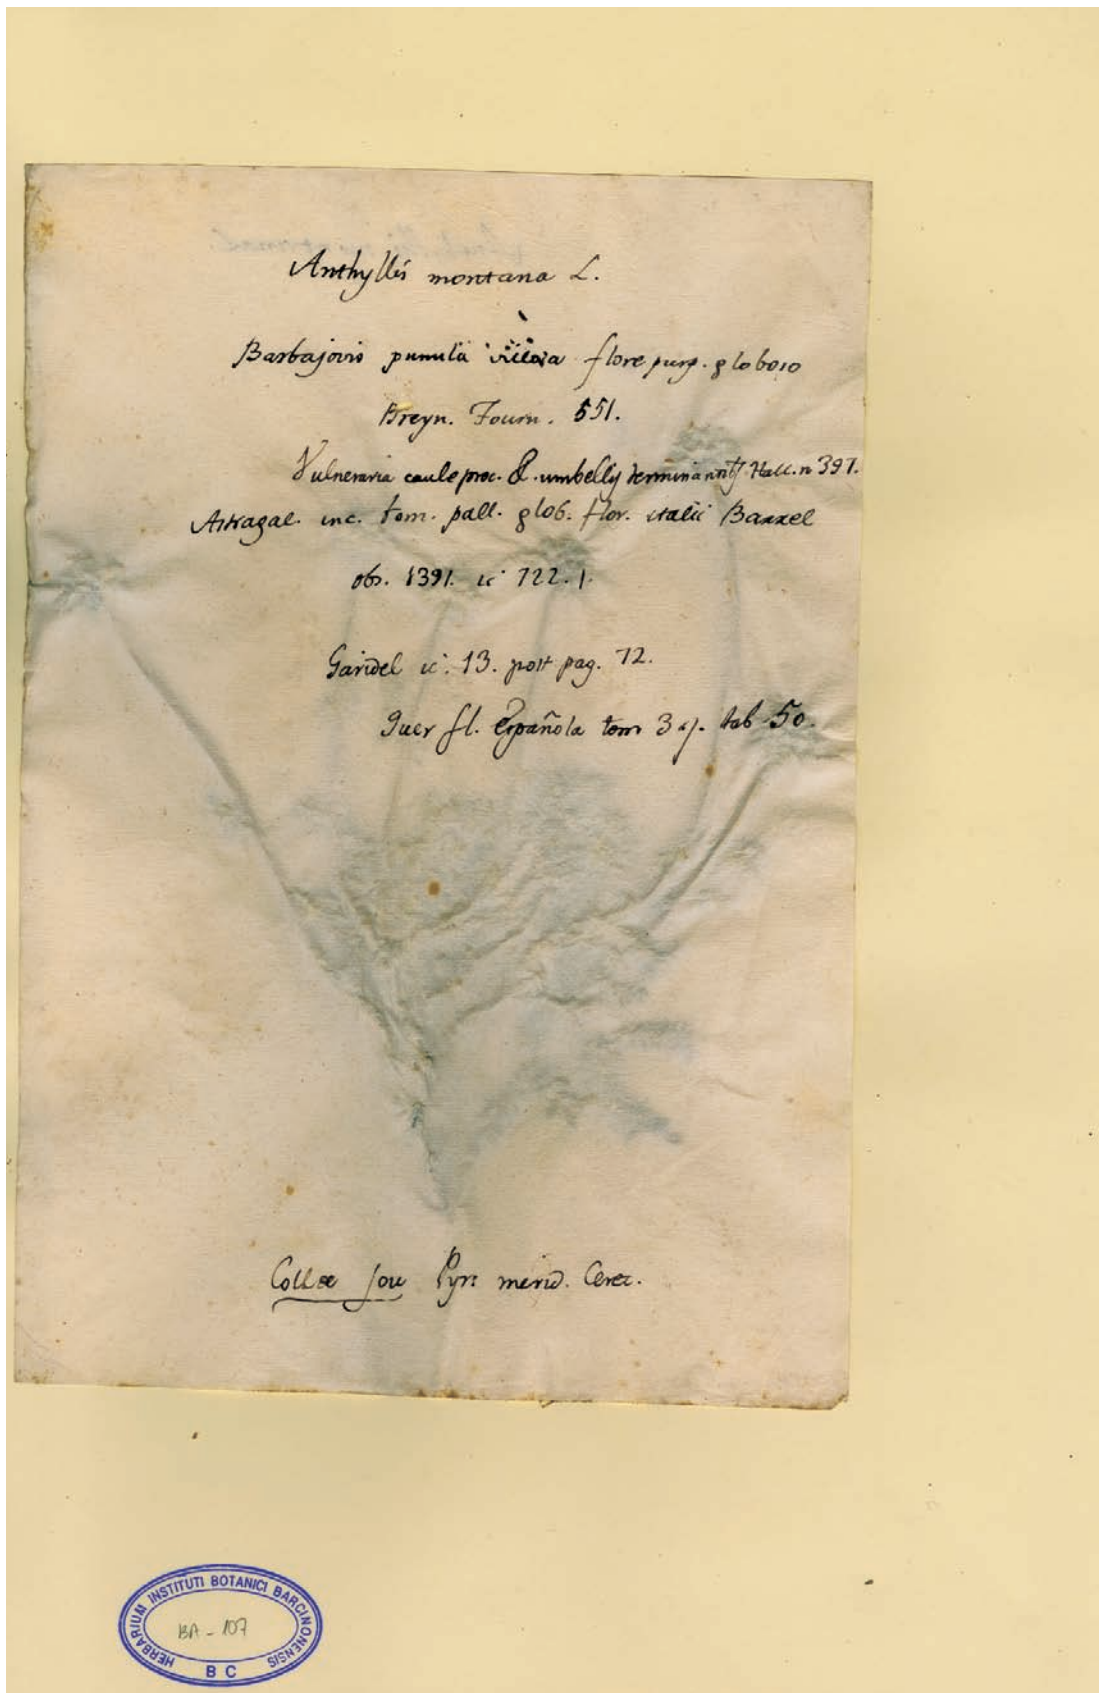 Anthyllis montana L.
Barbajovis pumila villosa flore purp. globoso
Breyn. Tourn. 551.
Vulneraria caule proc. & umbellis terminantib Hall. n 397.
Astragal. inc. tom. pall. glob. flor. italic Barrel
obs. 1391. ic 722. 1.
Garidel ic. 13. post pag. 12.
Quer fl. Española tom 3 tab 50.
Coll de Jou Pyr: merid. Ceret.
HERBARIUM INSTITUTI BOTANICI BARCINONENSIS
BA - 107
B C